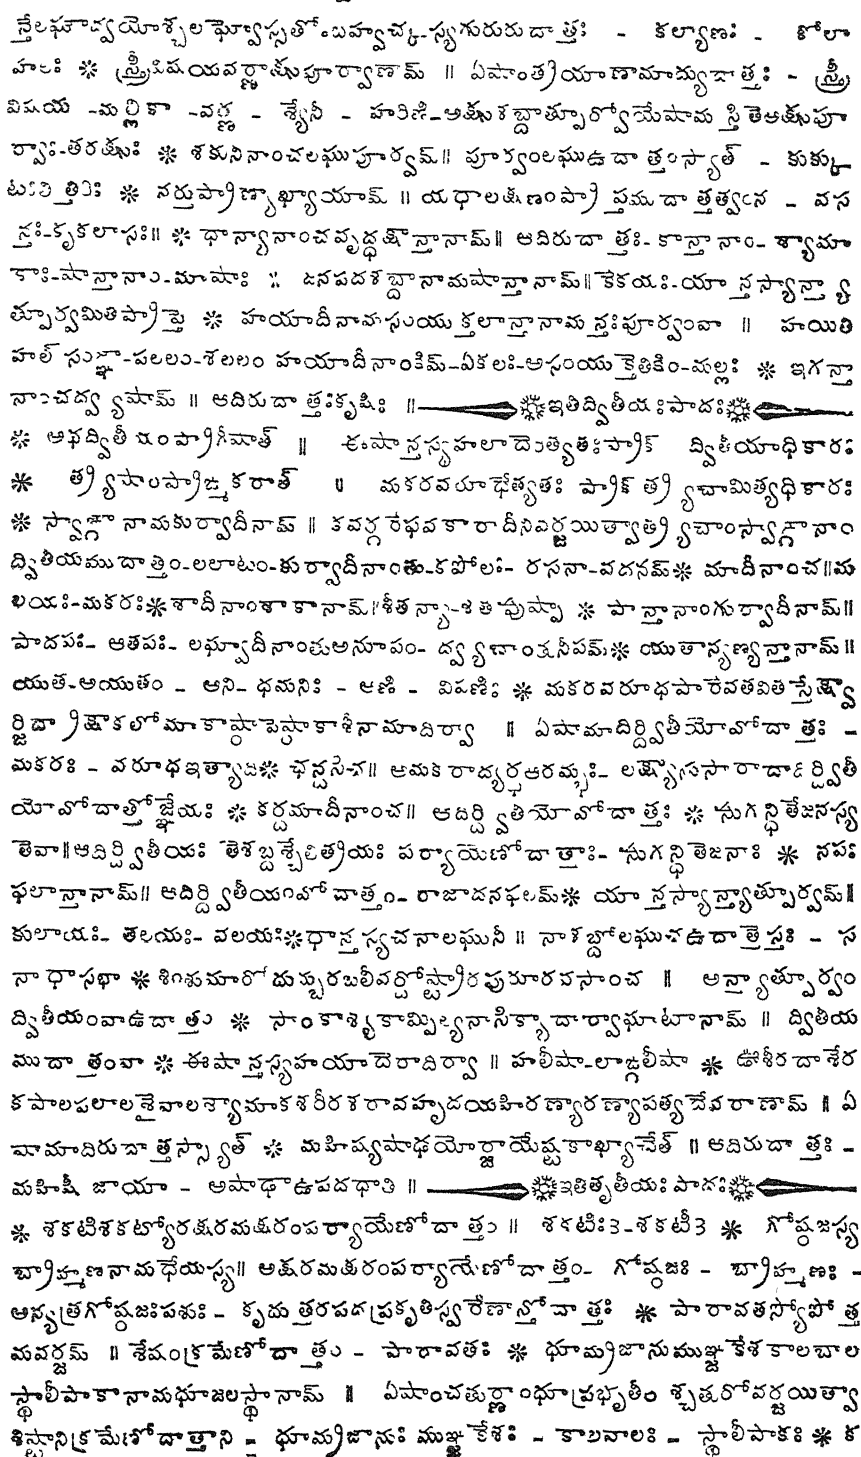 న్తేలఘౌద్వయోశ్చలఘ్వోస్సతోఃబహ్వచ్క-స్యగురురుదాత్తః - కల్యాణః - కోలా
హలః ❋ స్త్రీవిషయవర్ణాక్షుపూర్వాణామ్ ॥ ఏషాంత్రయాణామాద్యుదాత్తః - స్త్రీ
విషయ -మల్లికా -వర్ణ - శ్యేనీ - హరిణీ-అక్షుశబ్దాత్పూర్వోయేషామస్తితెఅక్షుపూ
ర్వాః-తరక్షుః ❋ శకునీనాంచలఘుపూర్వమ్॥ పూర్వంలఘుఉదాత్తంస్యాత్ - కుక్కు
టఃతిత్తిరిః ❋ నర్తుప్రాణ్యాఖ్యాయామ్ ॥ యథాలక్షణంప్రాప్తముదాత్తత్వంన - వస
న్తః-కృకలాసః॥ ❋ ధాన్యానాంచవృద్ధక్షాన్తానామ్॥ ఆదిరుదాత్తః- కాన్తానాం- శ్యామా
కాః-షాన్తానాం-మాషాః ❋ జనపదశబ్దానామషాన్తానామ్॥ కేకయః-యాన్తస్యాన్త్యా
త్పూర్వమితిప్రాప్తె ❋ హయాదీనామసంయుక్తలాన్తానామన్తఃపూర్వంవా ॥ హయితి
హల్ సంజ్ఞా-పలలం-శలలం హయాదీనాంకిమ్-ఏకలః-అసంయుక్తెతికిం-మల్లః ❋ ఇగన్తా
నాంచద్వ్యషామ్ ॥ ఆదిరుదాత్తఃకృషిః ॥ ❋ఇతిద్వితీయఃపాదః❋
❋ అథద్వితీయంప్రాగీషాత్ ॥ ఈషాన్తస్యహలాదెరిత్యతఃప్రాక్ ద్వితీయాధికారః
❋ త్ర్యిషాంప్రాఙ్మకరాత్ ॥ మకరవరూఢేత్యతః ప్రాక్ త్ర్యిచామిత్యధికారః
❋ స్వాఙ్గానామకుర్వాదీనామ్ ॥ కవర్గరేఫవకారాదీనివర్జయిత్వాత్ర్యిచాంస్వాఙ్గానాం
ద్వితీయముదాత్తం-లలాటం-కుర్వాదీనాంతు-కపోలః- రసనా-వదనమ్❋ మాదీనాంచ॥మ
లయః-మకరః❋శాదీనాంశాకానామ్॥శీతన్యా-శతపుష్పా ❋ పాన్తానాంగుర్వాదీనామ్॥
పాదపః- ఆతపః- లఘ్వాదీనాంతుఅనూపం- ద్వ్యచాంతునీపమ్❋ యుతాన్యణ్యన్తానామ్॥
యుత-అయుతం - అని- ధమనిః - అణి - విపణిః ❋ మకరవరూఢపారేవతవితస్తేక్ష్వా
ర్జిద్రాక్షాకలోమాకాష్ఠాపేష్ఠాకాశీనామాదిర్వా ॥ ఏషామాదిర్ద్వితీయోవోదాత్తః -
మకరః - వరూఢఇత్యాది❋ ఛన్దసిచ॥ అమకరాద్యర్థఆరమ్భః- లక్ష్యానుసారాదాదిర్ద్వితీ
యోవోదాత్తోజ్ఞేయః ❋ కర్దమాదీనాంచ॥ ఆదిర్ద్వితీయోవోదాత్తః ❋ సుగన్ధితేజనస్య
తెవా॥ఆదిర్ద్వితీయః తెశబ్దశ్చేతిత్రయః పర్యాయేణోదాత్తాః- సుగన్ధితెజనాః ❋ నపః
ఫలాన్తానామ్॥ ఆదిర్ద్వితీయంవోదాత్తం- రాజాదనఫలమ్❋ యాన్తస్యాన్త్యాత్పూర్వమ్॥
కులాయః- తలయః- వలయః❋ధాన్తస్యచనాలఘునీ ॥ నాశబ్దోలఘుచఉదాత్తెస్తః - స
నాధాసభా ❋ శింశుమారోదుమ్బరబలీవర్దోష్ట్రారపురూరవసాంచ ॥ అన్త్యాత్పూర్వం
ద్వితీయంవాఉదాత్తం ❋ సాంకాశ్యకామ్పిల్యనాసిక్యాదార్వాఘాటానామ్ ॥ ద్వితీయ
ముదాత్తంవా ❋ ఈషాన్తస్యహయాదెరాదిర్వా ॥ హలీషా-లాఙ్గలీషా ❋ ఉశీరదాశేర
కపాలపలాలశైవాలశ్యామాకశరీరశరావహృదయహిరణ్యారణ్యాపత్యదేవరాణామ్ ॥ ఏ
షామాదిరుదాత్తస్స్యాత్ ❋ మహిష్యషాఢయోర్జాయేష్టకాఖ్యాచేత్ ॥ ఆదిరుదాత్తః -
మహిషీ జాయా - అషాఢాఉపదధాతి ॥ ❋ఇతితృతీయఃపాదః❋
❋ శకటిశకట్యోరక్షరమక్షరంపర్యాయేణోదాత్తం ॥ శకటిః3-శకటీ3 ❋ గోష్ఠజస్య
బ్రాహ్మణనామధేయస్య॥ అక్షరమక్షరంపర్యాయేణోదాత్తం- గోష్ఠజః - బ్రాహ్మణః -
అన్యత్రగోష్ఠజఃపశుః- కృదుత్తరపదప్రకృతిస్వరేణాన్తోదాత్తః ❋ పారావతస్యోపోత్త
మవర్జమ్ ॥ శేషంక్రమేణోదాత్తం - పారావతః ❋ ధూమ్రజానుముఞ్జకేశకాలవాల
స్థాలీపాకానామధూజలస్థానామ్ ॥ ఏషాంచతుర్ణాంధూప్రభృతీంశ్చతురోవర్జయిత్వా
శిష్టానిక్రమేణోదాత్తాని - ధూమ్రజానుః ముఞ్జకేశః - కాలవాలః - స్థాలీపాకః ❋ క